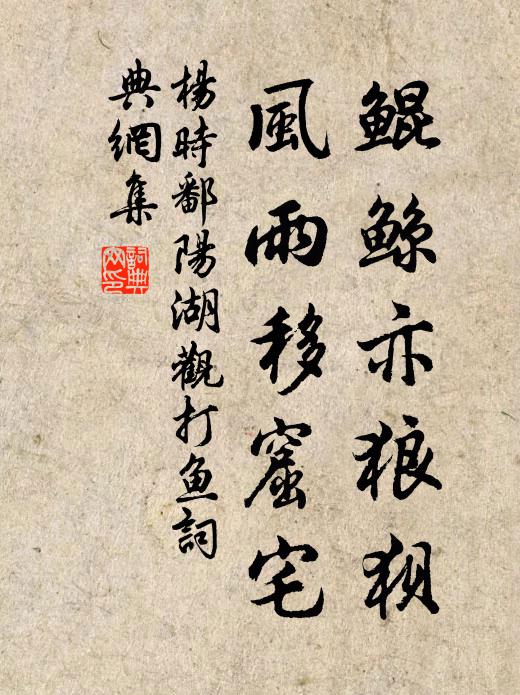 鲲鲸亦狼狈
風雨移窟宅
楊時鄱陽湖觀打魚詞
典網集
詞典